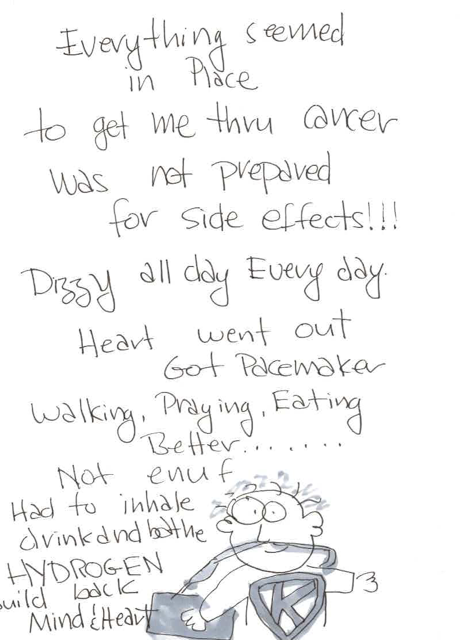 Everything seemed
in Place
to get me thru cancer
was not prepared
for side effects!!!
Dizzy all day Every day.
Heart went out
Got Pacemaker
Walking, Praying, Eating
Better.......
Not enuf
Had to inhale
drink and bathe
HYDROGEN
build back
Mind & Heart
K